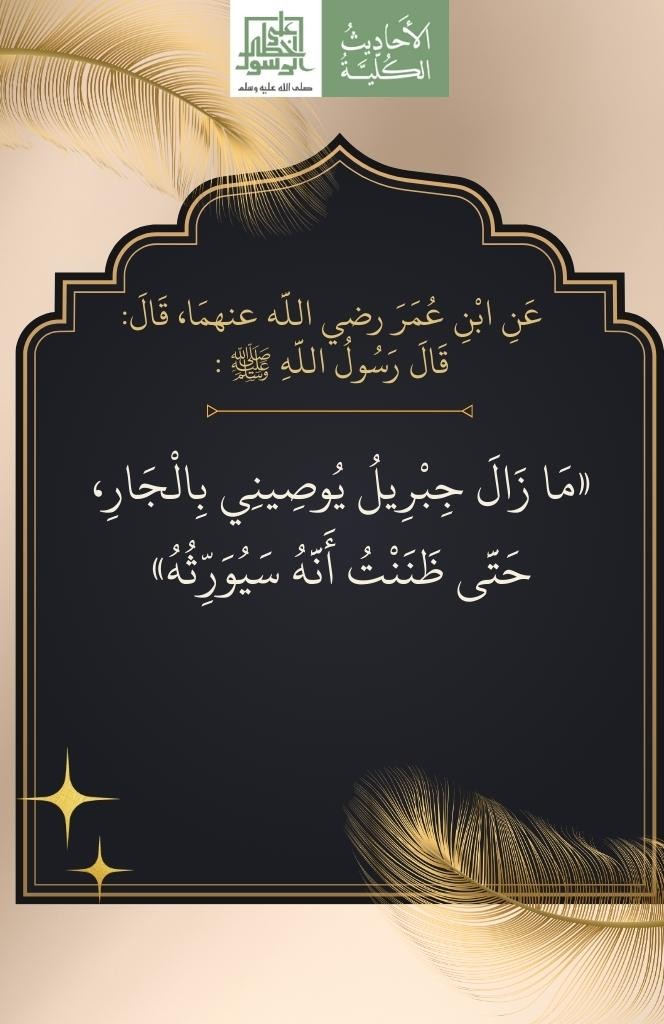 الأَحَادِيثُ
الكُلِّيَّةُ
على
خطى
الرسول
صلى الله عليه وسلم
عَنِ ابْنِ عُمَرَ رضي اللّه عنهمَا، قَالَ:
قَالَ رَسُولُ اللّهِ ﷺ :
«مَا زَالَ جِبْرِيلُ يُوصِينِي بِالْجَارِ،
حَتّى ظَنَنْتُ أَنّهُ سَيُوَرِّثُهُ»